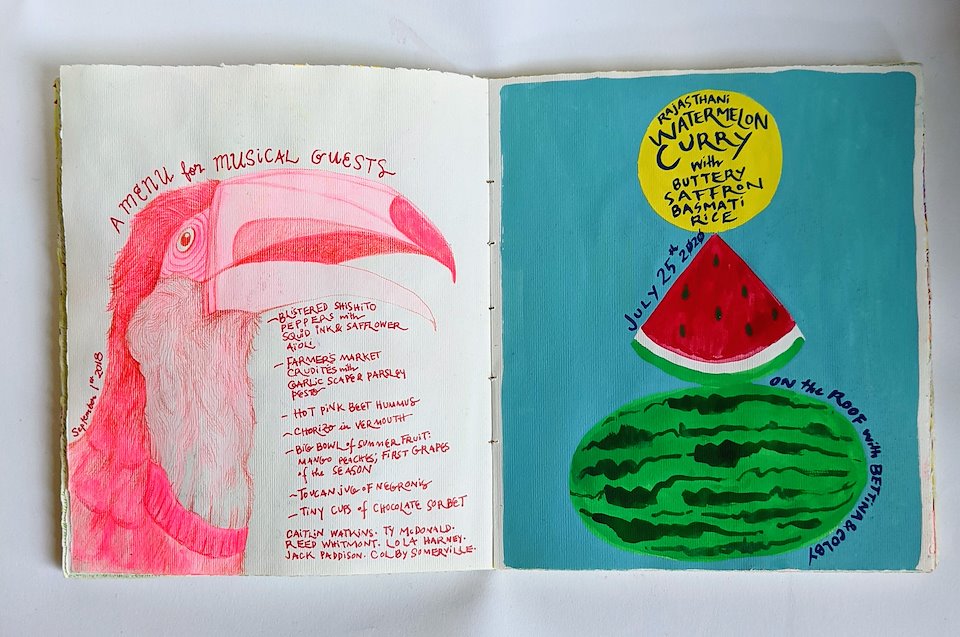 A MENU for MUSICAL GUESTS
September 1st 2018
~BLISTERED SHISHITO
PEPPERS with
SQUID INK & SAFFLOWER
AIOLI
~FARMER'S MARKET
CRUDITES with
GARLIC SCAPE & PARSLEY
PESTO
~HOT PINK BEET HUMMUS
~CHORIZO in VERMOUTH
~BIG BOWL of SUMMER FRUIT:
MANGO PEACHES; FIRST GRAPES
of the SEASON
~TOUCAN JUG OF NEGRONIS
~TINY CUPS of CHOCOLATE SORBET
CAITLIN WATKINS. TY McDONALD.
REED WHITMONT. LOLA HARNEY.
JACK PADDISON. COLBY SOMERVILLE.
RAJASTHANI
WATERMELON
CURRY
with
BUTTERY
SAFFRON
BASMATI
RICE
JULY 25th 2020
ON the ROOF with BETTINA & COLBY